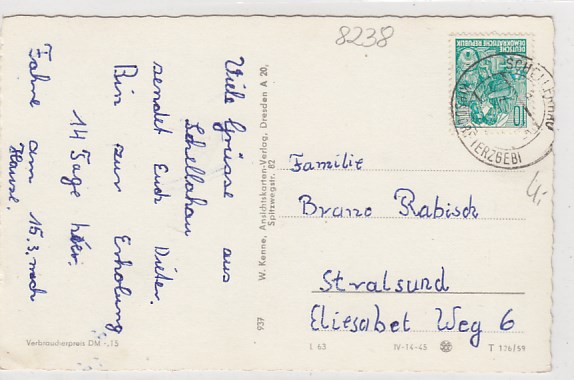 8238
Viele Grüsse aus
Schellahau
sendet Euch Dieter.
Bin zur Erholung
14 Tage hier.
Fahre am 15.3. nach
Hause.
Verbraucherpreis DM -,15
937 W. Kenne, Ansichtskarten-Verlag, Dresden A 20,
Spitzwegstr. 82
DEUTSCHE
DEMOKRATISCHE REPUBLIK
10
SCHELLERHAU
ERZGEB
Familie
Bruno Rabisch
Stralsund
Eliesabet Weg 6
L 63 IV-14-45 T 126/59